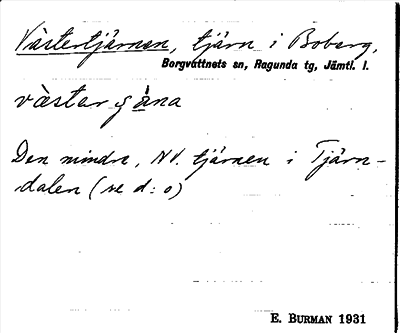 Västertjärnen, tjärn i Boberg,
Borgvattnets sn, Ragunda tg, Jämtl. l.
vàstar
Den mindre, NV. tjärnen i Tjärn-
dalen (se d: o)
E. BURMAN 1931